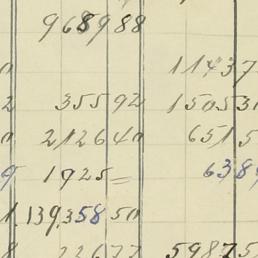 968988
11437
2 35592 150530
0 212640 6515
9 1925= 638
1.139.35850
8 22677 59875